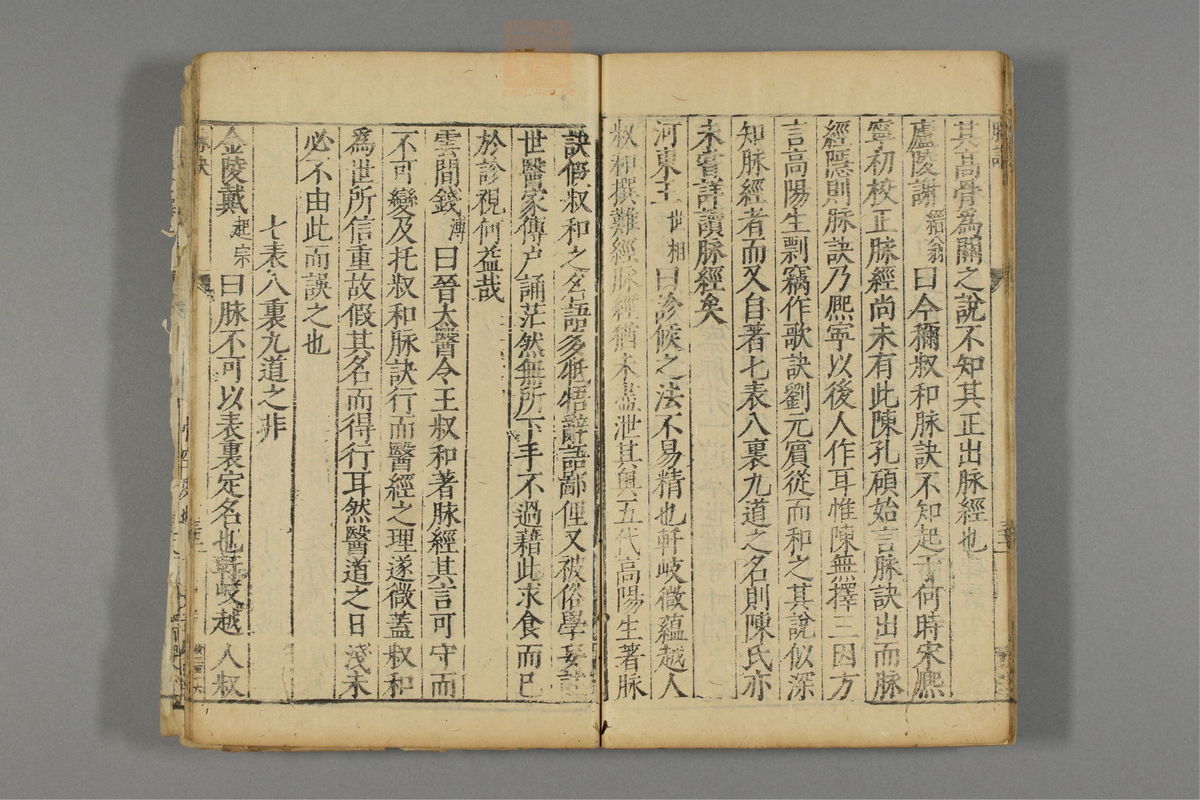 其高骨為關之說不知其正出脉經也
廬陵謝縉翁曰今稱叔和脉訣不知起于何時宋熈
寧初校正脉經尚未有此陳孔碩始言脉訣出而脉
經隱則脉訣乃熈寧以後人作耳惟陳無擇三因方
言高陽生剽竊作歌訣劉元賔從而和之其說似深
知脉經者而又自著七表八裏九道之名則陳氏亦
未嘗詳讀脉經矣
河東王世相曰診候之法不易精也軒岐微蘊越人
叔和撰難經脉經猶未盡泄其奥五代高陽生著脉
訣假叔和之名語多牴牾辭語鄙俚又被俗學妄註
世醫家傳户誦茫然無所下手不過藉此求食而已
於診視何益哉
雲間錢溥曰晉太醫令王叔和著脉經其言可守而
不可變及托叔和脉訣行而醫經之理遂微蓋叔和
為世所信重故假其名而得行耳然醫道之日淺未
必不由此而誤之也
七表八裏九道之非
金陵戴起宗曰脉不可以表裏定名也軒岐越人叔